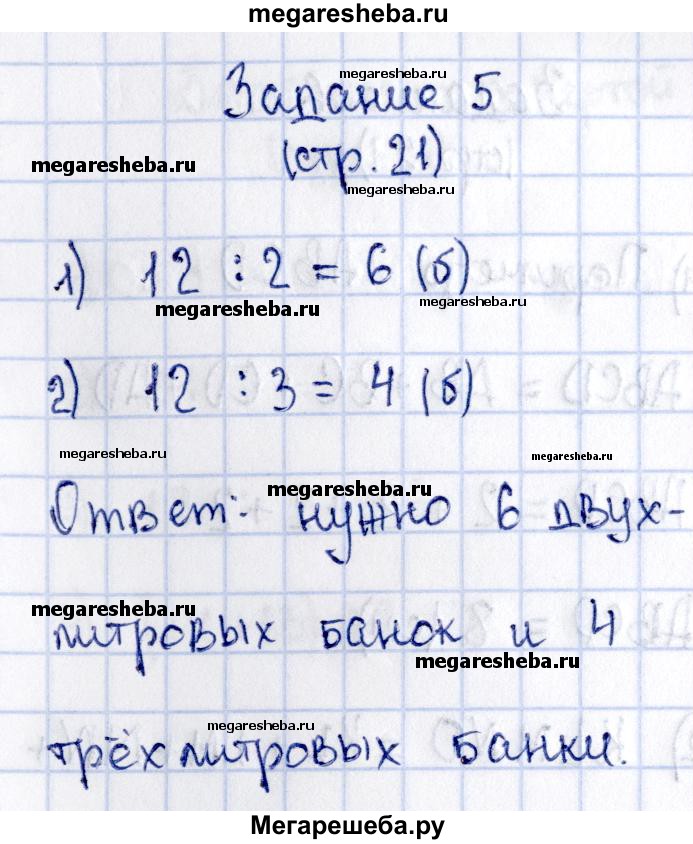 megaresheba.ru
megaresheba.ru
Задание 5
megaresheba.ru
megaresheba.ru
(стр. 21)
megaresheba.ru
1) 12 : 2 = 6 (б)
megaresheba.ru
megaresheba.ru
2) 12 : 3 = 4 (б)
megaresheba.ru
megaresheba.ru
megaresheba.ru
Ответ: нужно 6 двух-
megaresheba.ru
литровых банок и 4
megaresheba.ru
megaresheba.ru
трёхлитровых банки.
Мегарешеба.ру